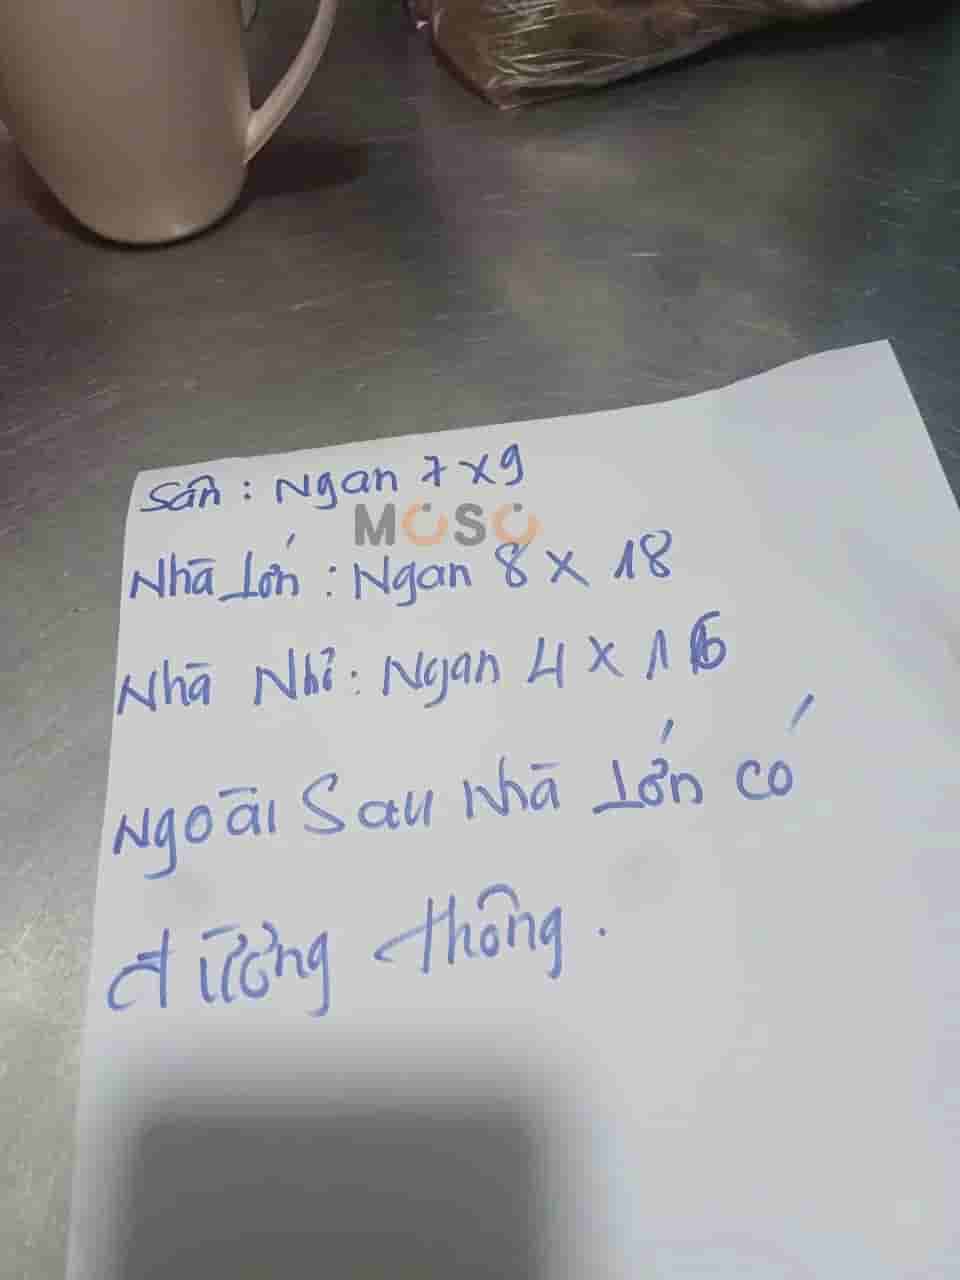 Sân : Ngan 7 x 9
MOSO
Nhà Lớn : Ngan 8 x 18
Nhà Nhỏ : Ngan 4 x 16
Ngoài Sau Nhà Lớn có
đường thông .